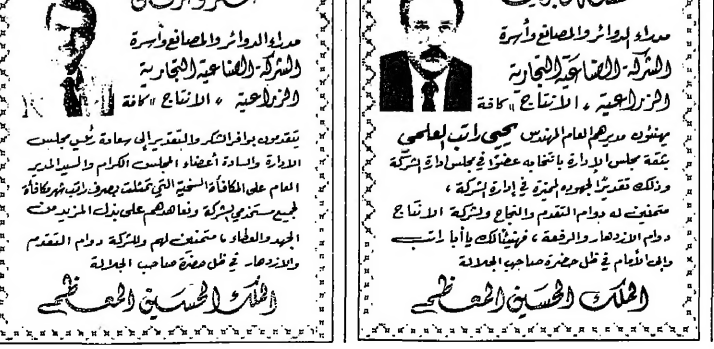 مدراء الدوائر والمصانع وأسرة
الشركة الصناعية التجارية
الزراعية « الانتاج » كافة
مهنئون مديرهم العام المهندس يحيى راتب العلمي
بثقة مجلس الإدارة بانتخابه عضوًا في مجلس ادارة الشركة
وذلك تقديرًا لجهوده المميزة في إدارة الشركة ،
متمنين له دوام التقدم والنجاح ولشركة الانتاج
دوام الازدهار والرفعة ، فهنيئًا لك يا أبا راتب
وإلى الأمام في ظل حضرة صاحب الجلالة
الملك الحسين المعظم
مدراء الدوائر والمصانع وأسرة
الشركة الصناعية التجارية
الزراعية « الانتاج » كافة
يتقدمون بوافر الشكر والتقدير إلى سعادة رئيس مجلس
الادارة والسادة أعضاء المجلس الكرام والسيد المدير
العام على المكافأة السخية التي تمثلت بصرف راتب شهر مكافأة
لجميع مستخدمي الشركة ونعاهدهم على بذل المزيد من
الجهد والعطاء ، متمنين لهم وللشركة دوام التقدم
والازدهار في ظل حضرة صاحب الجلالة
الملك الحسين المعظم